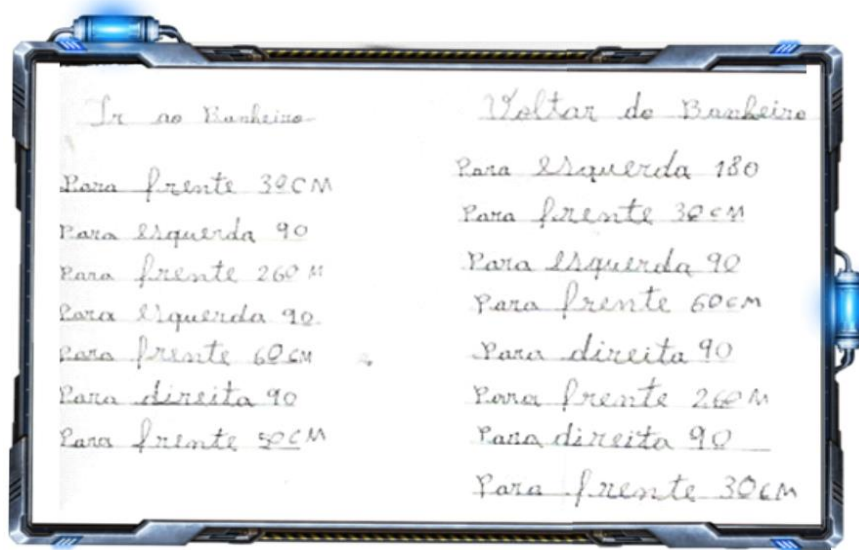 Ir ao Banheiro
Para frente 30CM
Para esquerda 90
Para frente 260 M
Para esquerda 90
Para frente 60 CM
Para direita 90
Para frente 50CM
Voltar do Banheiro
Para esquerda 180
Para frente 30 cM
Para esquerda 90
Para frente 60cM
Para direita 90
Para frente 260 M
Para direita 90
Para frente 30CM